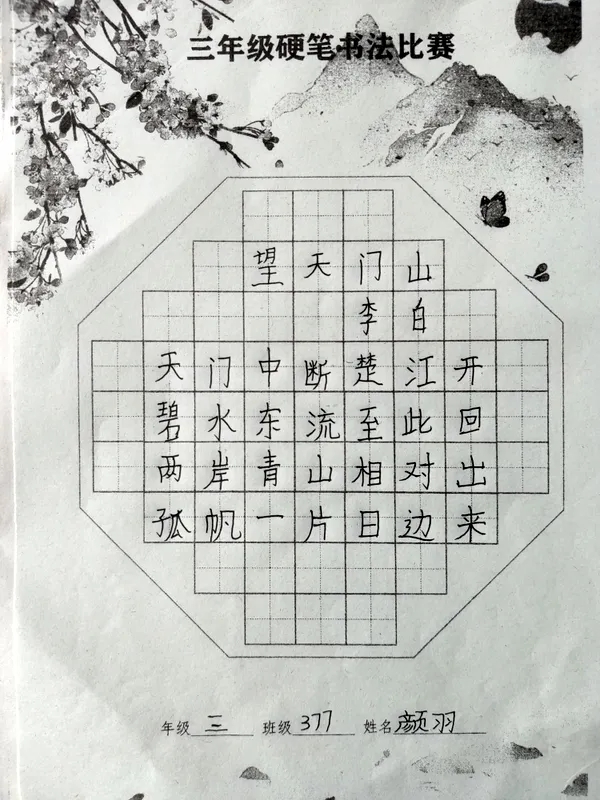 三年级硬笔书法比赛
望天门山
李白
天门中断楚江开
碧水东流至此回
两岸青山相对出
孤帆一片日边来
年级 三 班级 377 姓名 颜羽